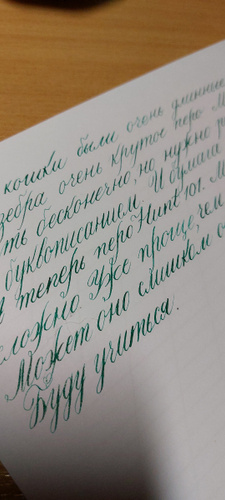 кошки были очень умными
зебра очень крутое перо М
ть бесконечно, но нужно р
буквописанием. И бумага
в теперь перо Hunt 101. М
сложно. Уже проще, чем
Может оно слишком о
Буду учиться.